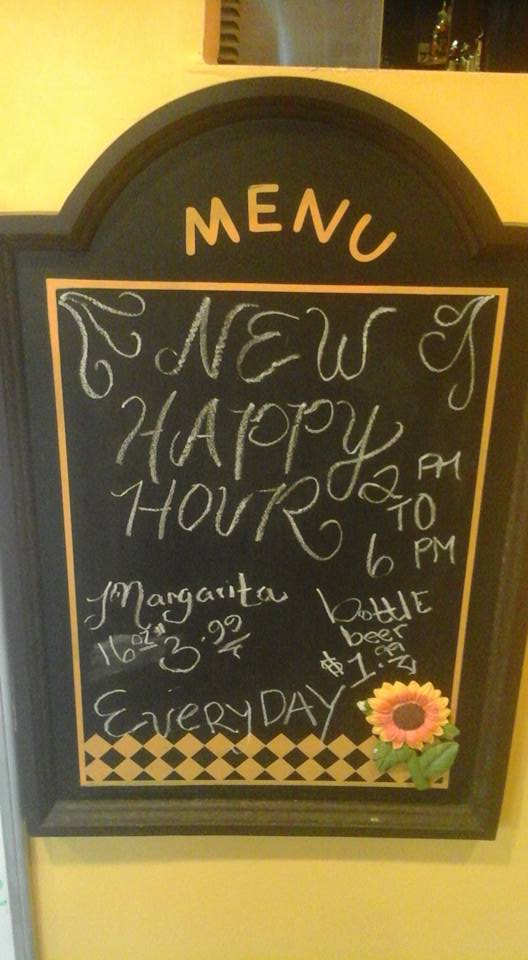 MENU
NEW
HAPPY
HOUR
2 PM
TO
6 PM
Margarita
16 oz" 3.99
bottlE
beer
$1.99
EVERYDAY